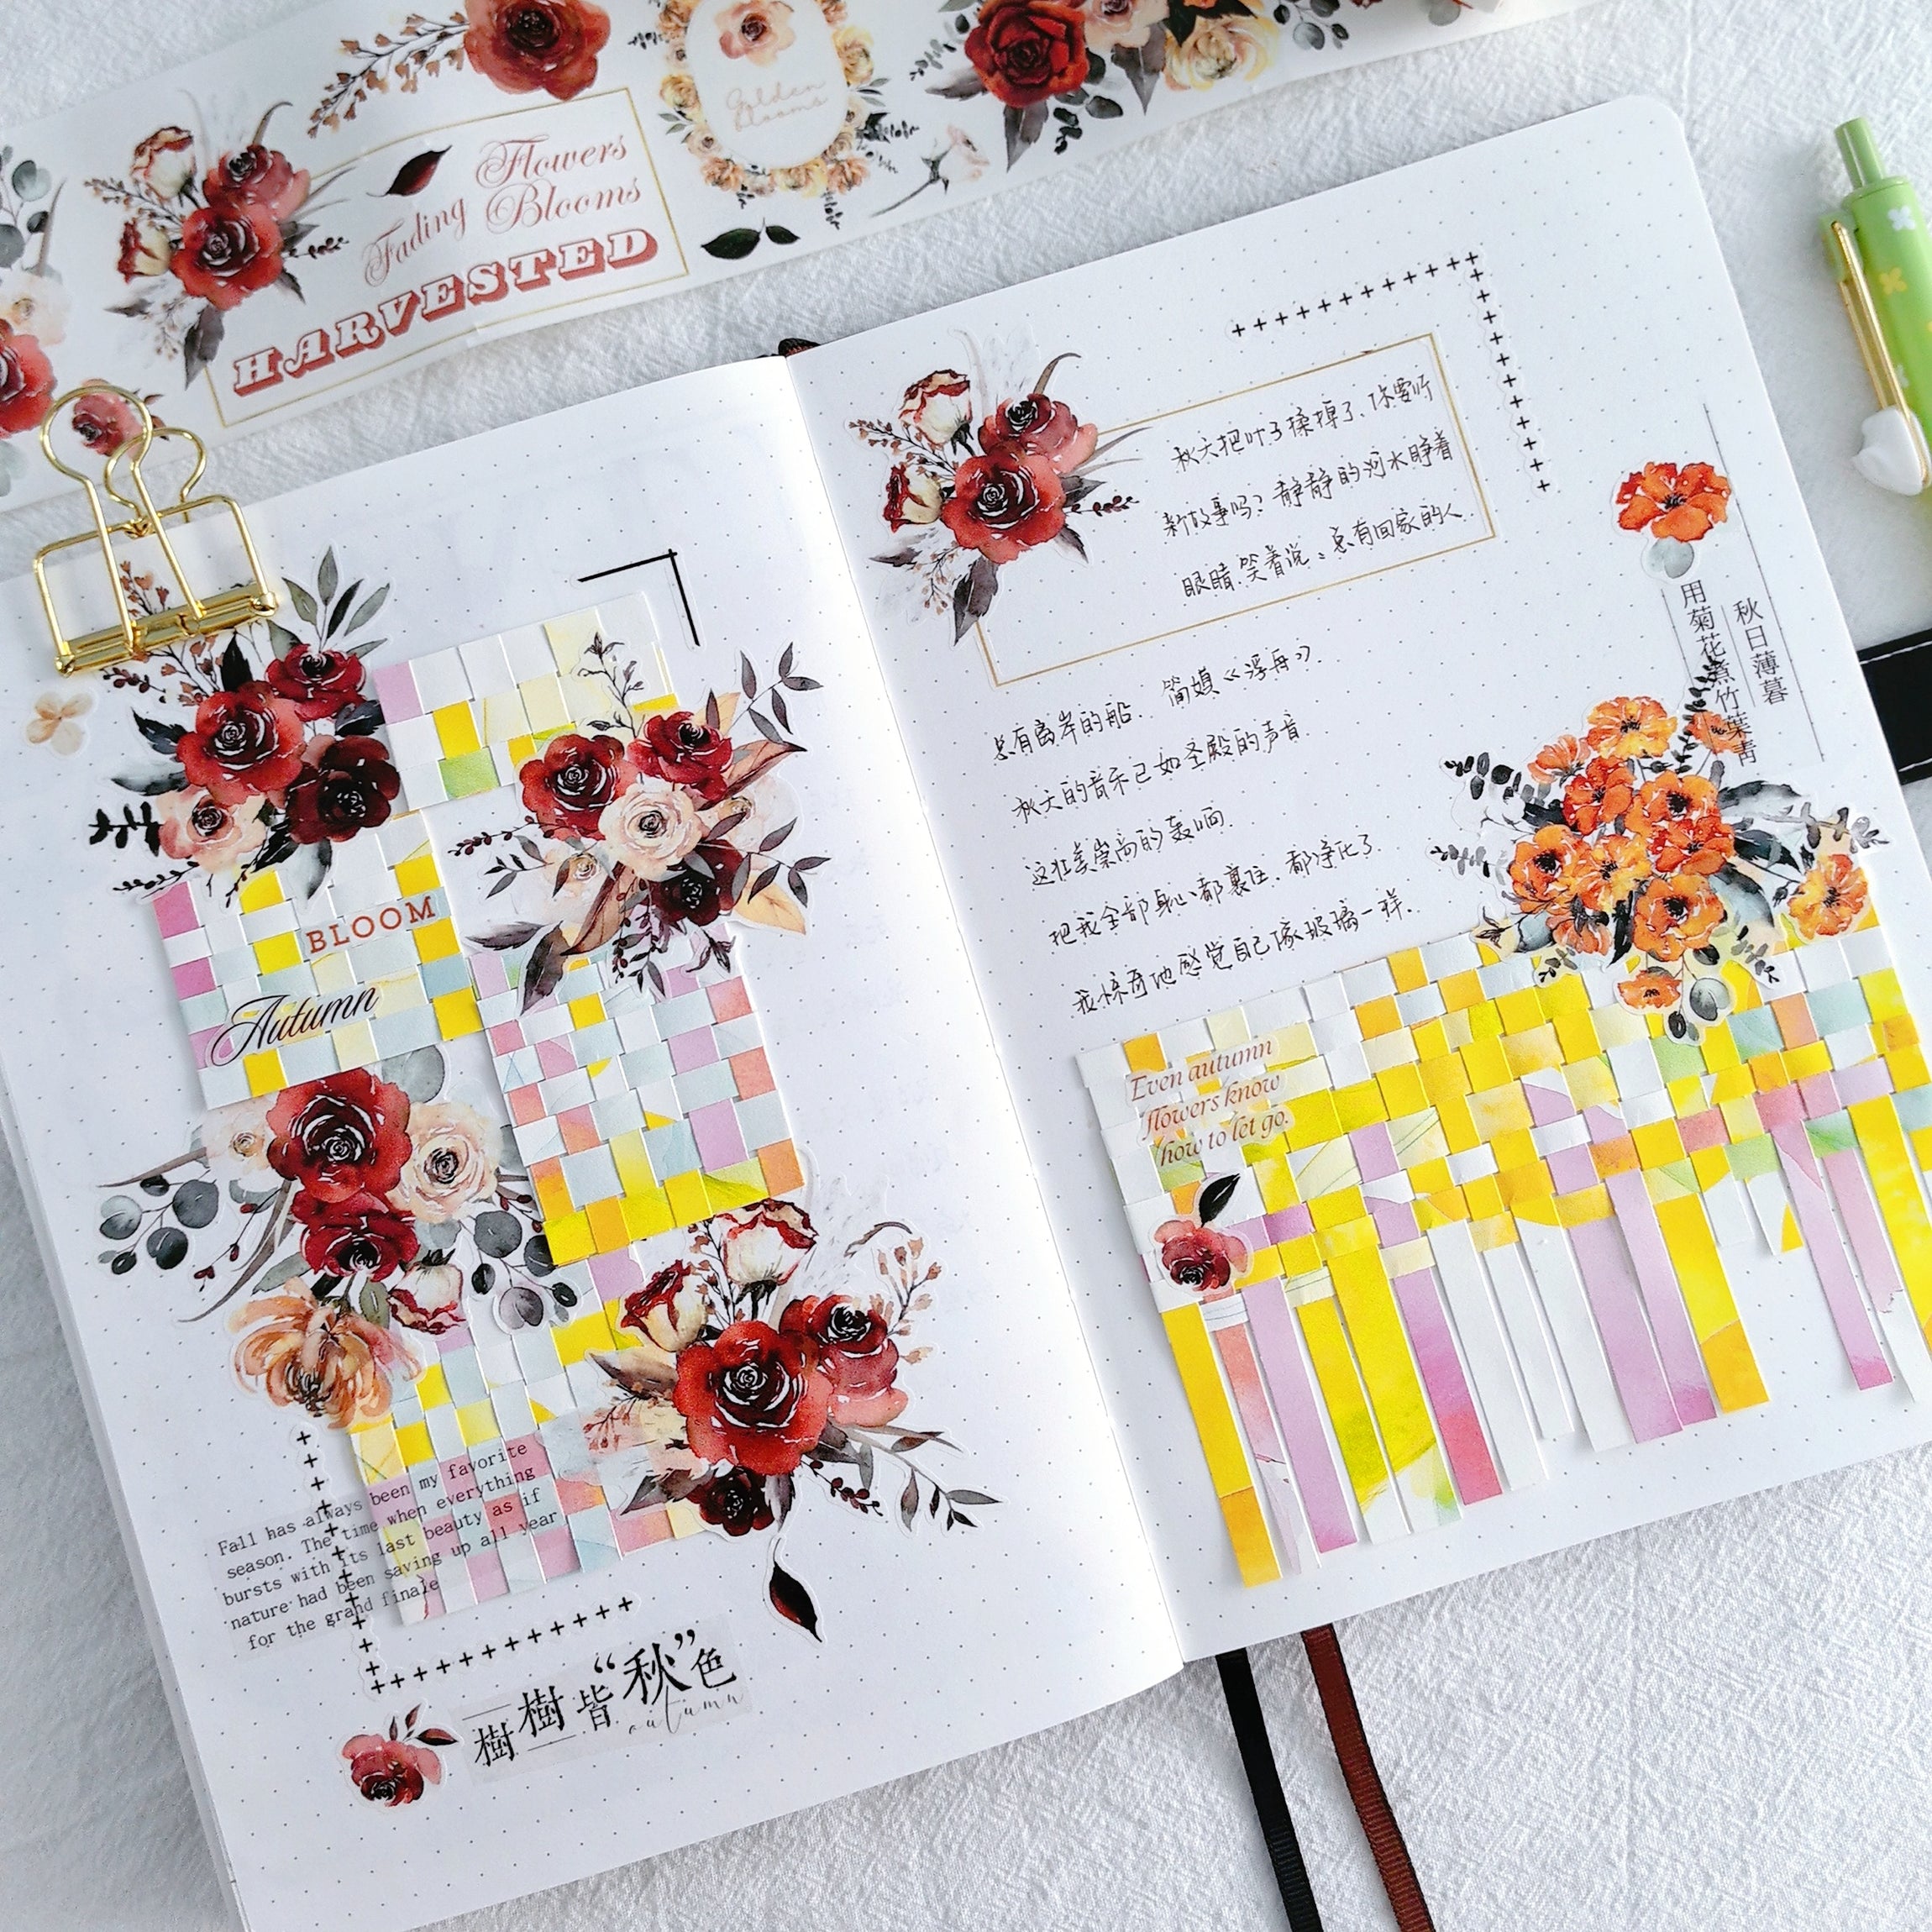 Flowers
Fading Blooms
HARVESTED
Golden
blooms
BLOOM
Autumn
Fall has always been my favorite
season. The time when everything
bursts with its last beauty as if
nature had been saving up all year
for the grand finale
樹樹皆“秋”色
autumn
秋天把叶子揉掉了,你要听
新故事吗?静静的河水睁着
眼睛,笑着说:总有回家的人,
总有离岸的船。 简媜《浮舟》
秋天的音乐已如圣殿的声音
这壮美崇高的轰响
把我全部身心都裹住,都净化了.
我惊奇地感觉自己像玻璃一样.
秋日薄暮
用菊花煮竹葉青
Even autumn
flowers know
how to let go.